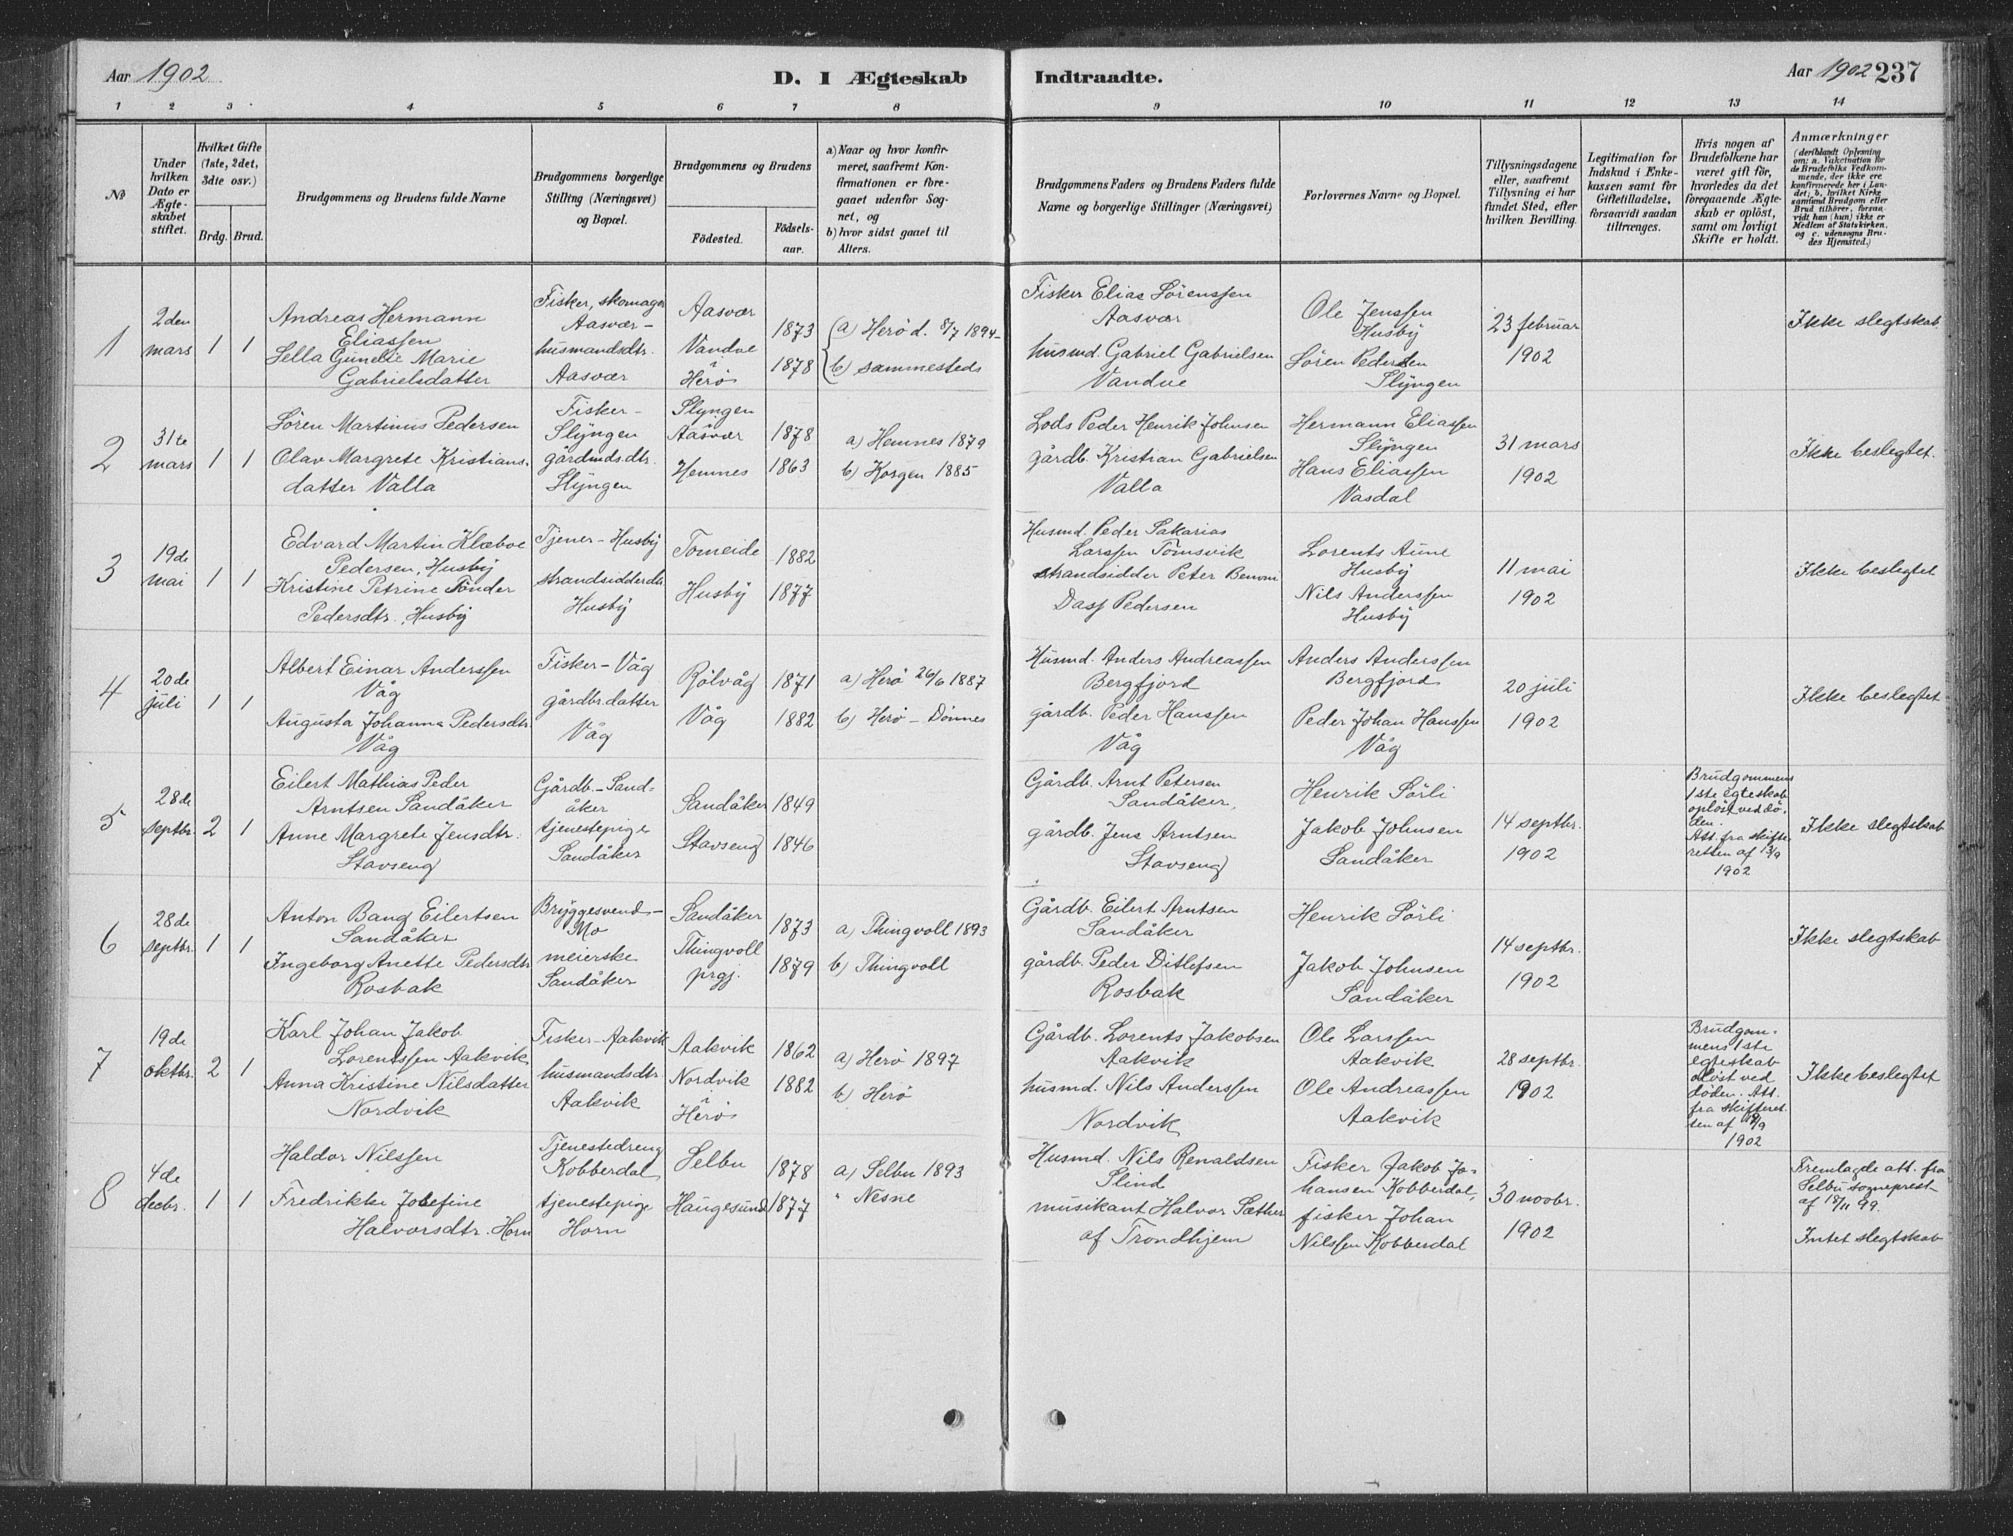 Aar 1902
D. I Ægteskab
Indtraadte.
Aar 1902 237
1 2 3 4 5 6 7 8 9 10 11 12 13 14
No
Under hvilken Dato er Ægteskabet stiftet.
Hvilket Gifte (1ste, 2det, 3die osv.)
Brdg. Brud.
Brudgommens og Brudens fulde Navne
Brudgommens borgerlige Stilling (Næringsvei) og Bopæl.
Brudgommens og Brudens
Fødested.
Fødselsaar.
a) Naar og hvor konfirmeret, saafremt Konfirmationen er foregaaet udenfor Sognet, og
b) hvor sidst gaaet til Alters.
Brudgommens Faders og Brudens Faders fulde Navne og borgerlige Stillinger (Næringsvei)
Forlovernes Navne og Bopæl.
Tillysningsdagene eller, saafremt Tillysning ei har fundet Sted, efter hvilken Bevilling.
Legitimation for Indskud i Enkekassen samt for Giftetilladelse, forsaavidt saadan tiltrænges.
Hvis nogen af Brudefolkene har været gift før, hvorledes da det foregaaende Ægteskab er opløst, samt om lovligt Skifte er holdt.
Anmærkninger
(deriblandt Oplysning om: a. Vakcination for de Brudefolks Vedkommende, der ikke ere konfirmerede her i Landet; b. hvilket Kirkesamfund Brudgom eller Brud tilhører, forsaavidt han (hun) ikke er Medlem af Statskirken, og c. udensogns Brudes Hjemsted.)
1
2den mars
1 1
Andreas Hermann
Eliassen
Sella Gunelie Marie
Gabrielsdatter
Fisker, skomager
Aasvær -
husmandsdtr.
Aasvær
Aasvær
Vandve
i
Herø
1873
1878
a) Herø d. 8/7 1894-
b) sammesteds
Fisker Elias Sørenssen
Aasvær
husmd. Gabriel Gabrielsen
Vandve
Ole Jenssen
Husby
Søren Pedersen
Slyngen
23 februar
1902
Ikke slegtskab
2
31te mars
1 1
Søren Martinus Pedersen
Olav Margrete Kristians-
datter Valla
Fisker -
Slyngen
gårdmdsdtr.
Slyngen
Slyngen
Aasvær
Hemnes
1878
1863
a) Hemnes 1879
b) Korgen 1885
Lods Peder Henrik Johnsen
gårdb. Kristian Gabrielsen
Valla
Hermann Eliassen
Slyngen
Hans Eliassen
Vasdal
31 mars
1902
Ikke beslegtet.
3
19de mai
1 1
Edvard Martin Klæboe
Pedersen, Husby
Kristine Petrine Tønder
Pedersdtr., Husby
Tjener - Husby
strandsidderdtr.
Husby
Tomeide
Husby
1882
1877
Husmd. Peder Sakarias
Larssen Tømsvik
strandsidder Peter Benoni
Dass Pedersen
Lorents Aune
Husby
Nils Anderssen
Husby
11 mai
1902
Ikke beslegtet
4
20de juli
1 1
Albert Einar Anderssen
Våg
Augusta Johanna Pedersdtr.
Våg
Fisker - Våg
gårdbr.datter
Våg
Rølvåg
Våg
1871
1882
a) Herø 26/6 1887
b) Herø - Dønnes
Husmd. Anders Andreassen
Bergfjord
gårdb. Peder Hanssen
Våg
Anders Anderssen
Bergfjord
Peder Johan Hanssen
Våg
20 juli
1902
Ikke beslegtet
5
28de septbr.
2 1
Eilert Mathias Peder
Arntsen Sandåker
Anne Margrete Jensdtr.
Stavseng
Gårdb. - Sand-
åker
tjenestepige
Sandåker
Sandåker
Stavseng
1849
1846
Gårdb. Arnt Petersen
Sandåker,
gårdb. Jens Arntsen
Stavseng
Henrik Sørli
Jakob Johnsen
Sandåker
14 septbr.
1902
Brudgommens
1ste egteskab
opløst ved dø-
den.
Att. fra skifte-
retten af 13/9
1902
Ikke slegtskab
6
28de septbr.
1 1
Anton Bang Eilertsen
Sandåker
Ingeborg Anette Pedersdtr
Rosbak
Bryggesvend -
Mo
meierske
Sandåker
Sandåker
Thingvoll
prgj.
1873
1879
a) Thingvoll 1893
b) Thingvoll
Gårdb. Eilert Arntsen
Sandåker
gårdb. Peder Ditlefsen
Rosbak
Henrik Sørli
Jakob Johnsen
Sandåker
14 septbr.
1902
Ikke slegtskab
7
19de oktbr.
2 1
Karl Johan Jakob
Lorentssen Aakvik
Anna Kristine Nilsdatter
Nordvik
Fisker - Aakvik
husmandsdtr.
Aakvik
Aakvik
Nordvik
i
Herø
1862
1882
a) Herø 1897
b) Herø
Gårdb. Lorents Jakobsen
Aakvik
husmd. Nils Anderssen
Nordvik
Ole Larssen
Aakvik
Ole Andreassen
Aakvik
28 septbr.
1902
Brudgom-
mens 1ste
egteskab
oløst ved
døden. Att.
fra skifteret-
ten af 19/9
1902
Ikke beslegtet
8
4de decbr.
1 1
Haldor Nilssen
Fredrikke Josefine
Halvorsdtr. Horn
Tjenestedreng
Kobberdal
tjenestepige
Horn
Selbu
Haugesund
1878
1877
a) Selbu 1893
" Nesne
Husmd. Nils Renaldsen
Slind
musikant Halvor Sæther
af Trondhjem
Fisker Jakob Jo-
hansen Kobberdal,
fisker Johan
Nilssen Kobberdal
30 novbr.
1902
Fremlagde att. fra
Selbu sogneprest
af 18/11 99.
Intet slegtskab